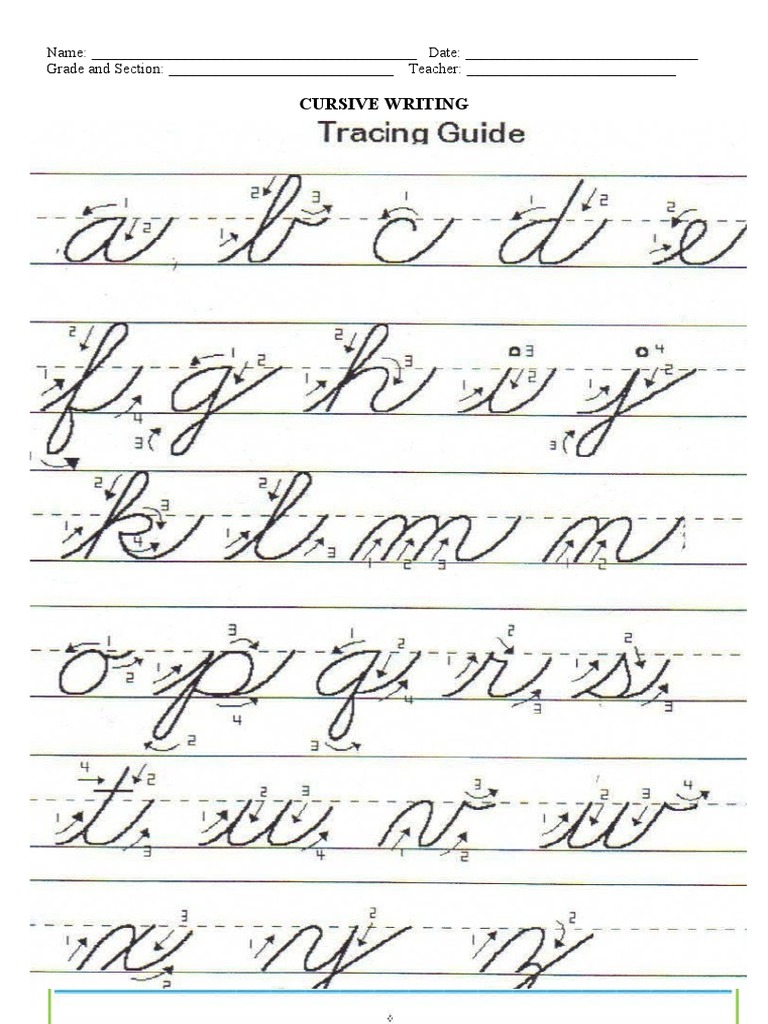 Name: ____________________ Date: ____________________
Grade and Section: ____________________ Teacher: ____________________
CURSIVE WRITING
Tracing Guide
a b c d e
f g h i j
k l m n
o p q r s
t u v w
x y z